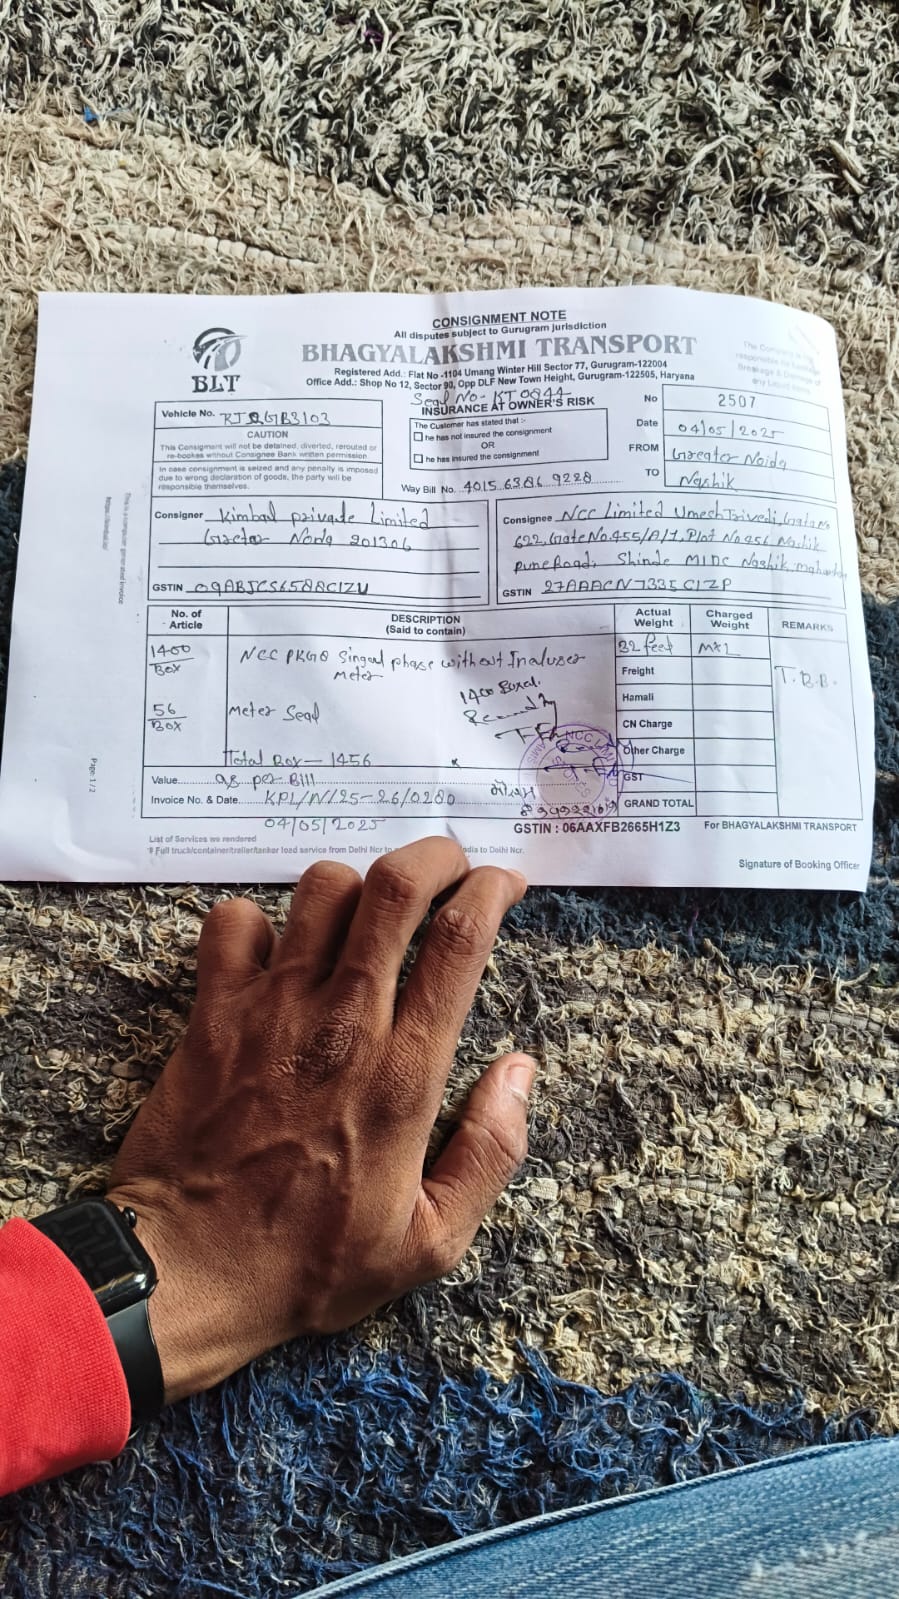 CONSIGNMENT NOTE
All disputes subject to Gurugram jurisdiction
BHAGYALAKSHMI TRANSPORT
BLT
Registered Add.: Flat No -1104 Umang Winter Hill Sector 77, Gurugram-122004
Office Add.: Shop No 12, Sector 90, Opp DLF New Town Height, Gurugram-122505, Haryana
The Company is
responsible for
Breakage & Damage of
any Liquid
Seal No- KT0844
INSURANCE AT OWNER'S RISK
Vehicle No.
CAUTION
This Consigment will not be detained, diverted, rerouted or
re-bookes without Consignee Bank written permission
In case consignment is seized and any penalty is imposed
due to wrong declaration of goods, the party will be
responsible themselves.
The Customer has stated that :-
he has not insured the consignment
OR
he has insured the consignment
Way Bill No. 4015 6386 9228
No 2507
Date 04/05/2025
FROM Greater Noida
TO Nashik
Consigner Kimbal private Limited
Greater Noida 201306
GSTIN 09ABJCS6588C1ZU
Consignee NCC Limited Umesh Trivedi, Gata No
622, Gate No.455/A/1, Plot No 456 Nashik
Pune Road, Shinde MIDC Nashik,
GSTIN 27AAACN7335C1ZP
No. of Article DESCRIPTION (Said to contain) Actual Weight Charged Weight REMARKS
1400 Box NCC PKG8 Singal phase without Inaluser
meter
32 feet MXL
T.B.B.
Freight
Hamali
1400 Boxes.
56 Box Meter Seal
CN Charge
Total Box — 1456
Other Charge
Value as per Bill
GST
Invoice No. & Date KPL/N/25-26/0280
04/05/2025
GRAND TOTAL
GSTIN : 06AAXFB2665H1Z3 For BHAGYALAKSHMI TRANSPORT
List of Services we rendered
Full truck/container/trailer/tanker load service from Delhi Ncr to India to Delhi Ncr.
Signature of Booking Officer
This is a computer generated invoice
Page: 1 / 2
NCC LIMI